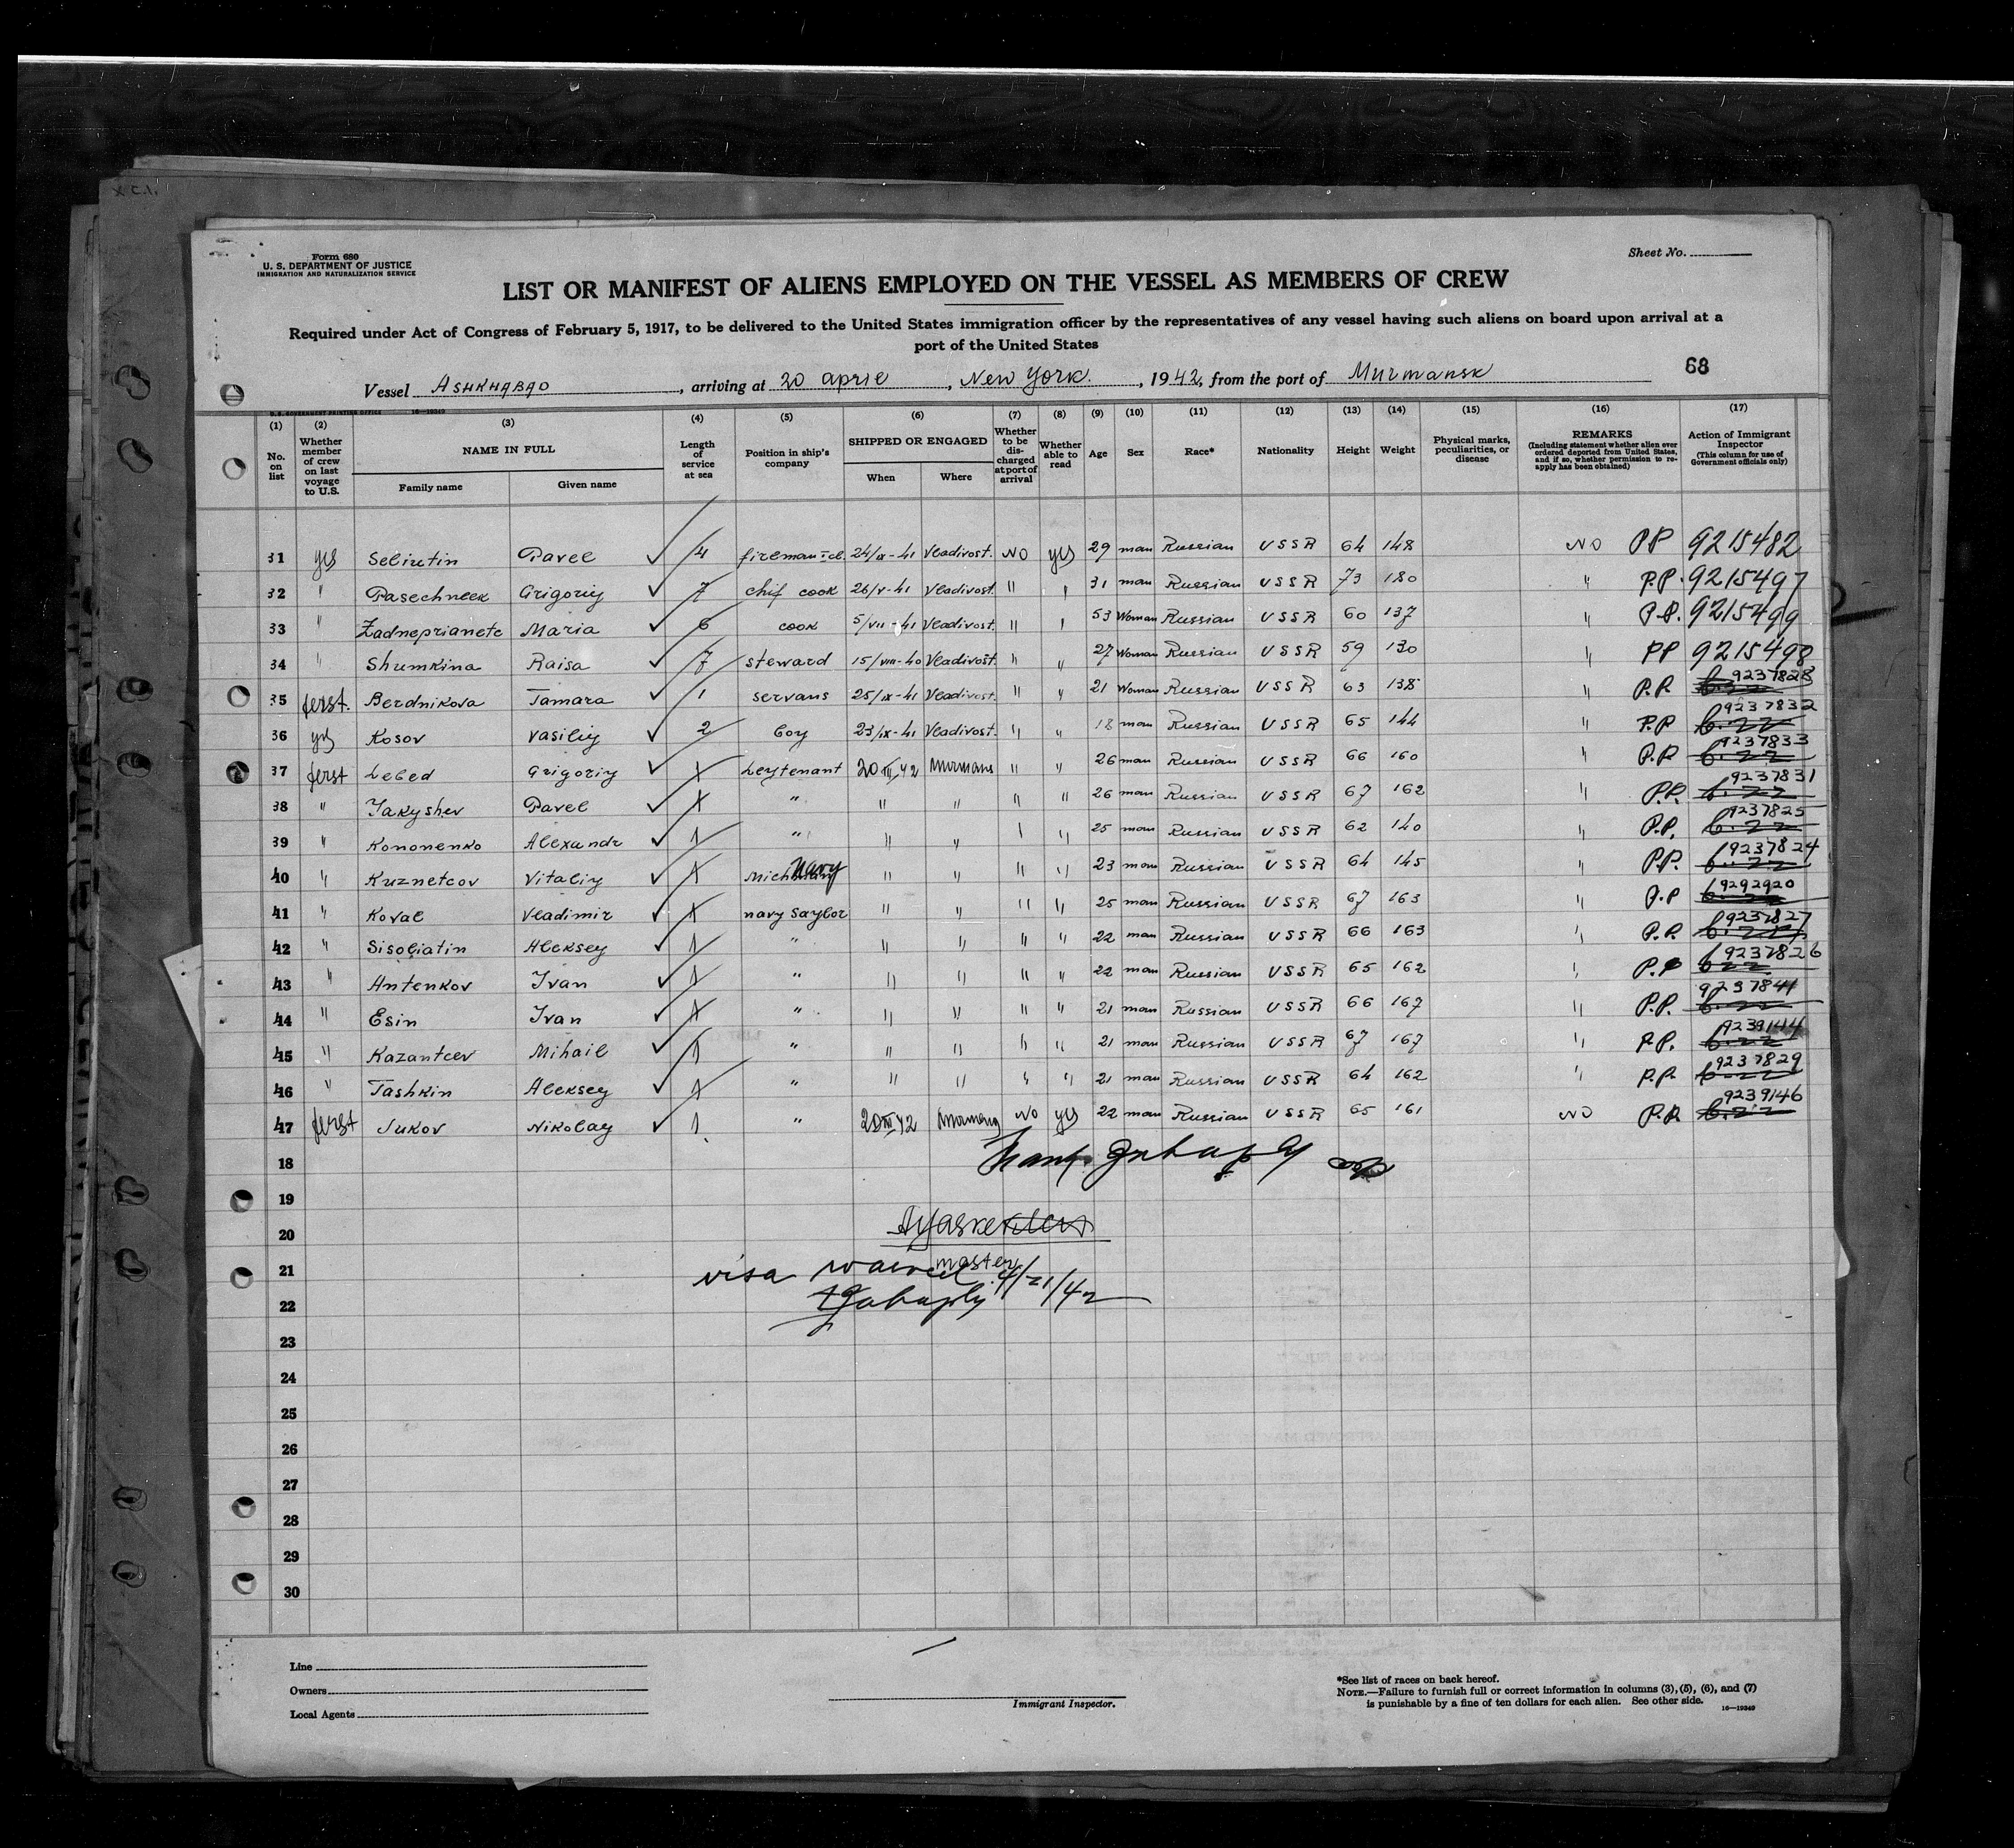 Form 680
U. S. DEPARTMENT OF JUSTICE
IMMIGRATION AND NATURALIZATION SERVICE
Sheet No.
LIST OR MANIFEST OF ALIENS EMPLOYED ON THE VESSEL AS MEMBERS OF CREW
Required under Act of Congress of February 5, 1917, to be delivered to the United States immigration officer by the representatives of any vessel having such aliens on board upon arrival at a
port of the United States
68
Vessel ASHKHABAD, arriving at 20 aprie, New York., 1942, from the port of Murmansk
U.S. GOVERNMENT PRINTING OFFICE 16—19349
(1) No. on list
(2) Whether member of crew on last voyage to U.S.
(3) NAME IN FULL
Family name Given name
(4) Length of service at sea
(5) Position in ship's company
(6) SHIPPED OR ENGAGED
When Where
(7) Whether to be discharged at port of arrival
(8) Whether able to read
(9) Age
(10) Sex
(11) Race*
(12) Nationality
(13) Height
(14) Weight
(15) Physical marks, peculiarities, or disease
(16) REMARKS
(Including statement whether alien ever ordered deported from United States, and if so, whether permission to reapply has been obtained)
(17) Action of Immigrant Inspector
(This column for use of Government officials only)
31 yes Seliutin Pavel ✓ 4 fireman I cl. 24/IX-41 Vladivost. NO yes 29 man Russian USSR 64 148 NO PP 9215482
32 " Pasechneek Grigoriy ✓ 7 chif cook 26/V-41 Vladivost. " " 31 man Russian USSR 73 180 " P.P. 9215497
33 " Zadneprianetc Maria ✓ 6 cook 5/VII-41 Vladivost. " " 53 Woman Russian USSR 60 137 " P.P. 9215499
34 " Shumkina Raisa ✓ 7 steward 15/VIII-40 Vladivost. " " 27 Woman Russian USSR 59 130 " PP 9215498
35 ferst. Berdnikova Tamara ✓ 1 servans 25/IX-41 Vladivost. " " 21 Woman Russian USSR 63 138 " P.P. 9237828
36 yes Kosov Vasiliy ✓ 2 boy 23/IX-41 Vladivost. " " 18 man Russian USSR 65 144 " P.P 9237832
37 ferst Lebed Grigoriy ✓ 1 Leytenant 20 III 42 Murmans " " 26 man Russian USSR 66 160 " P.P 9237833
38 " Jakyshev Pavel ✓ 1 " " " " " 26 man Russian USSR 67 162 " P.P. 9237831
39 " Kononenko Alexandr ✓ 1 " " " " " 25 man Russian USSR 62 140 " P.P. 9237825
40 " Kuznetcov Vitaliy ✓ 1 Navy " " " " 23 man Russian USSR 64 145 " P.P. 9237824
41 " Koval Vladimir ✓ 1 navy saylor " " " " 25 man Russian USSR 67 163 " P.P 9292920
42 " Sisoliatin Aleksey ✓ 1 " " " " " 22 man Russian USSR 66 163 " P.P. 9237827
43 " Antenkov Ivan ✓ 1 " " " " " 22 man Russian USSR 65 162 " P.P 9237826
44 " Esin Ivan ✓ 1 " " " " " 21 man Russian USSR 66 167 " P.P. 9237841
45 " Kazantcev Mihail ✓ 1 " " " " " 21 man Russian USSR 67 167 " P.P. 9239144
46 " Tashkin Aleksey ✓ 1 " " " " " 21 man Russian USSR 64 162 " P.P. 9237829
47 ferst Jukov Nikolay ✓ 1 " 20 III 42 NO yes 22 man Russian USSR 65 161 NO P.P. 9239146
18
19
20
master
21 visa waived 4/21/42
22
23
24
25
26
27
28
29
30
Line
Owners
Local Agents
Immigrant Inspector.
*See list of races on back hereof.
NOTE.—Failure to furnish full or correct information in columns (3), (5), (6), and (7)
is punishable by a fine of ten dollars for each alien. See other side.
16—19349